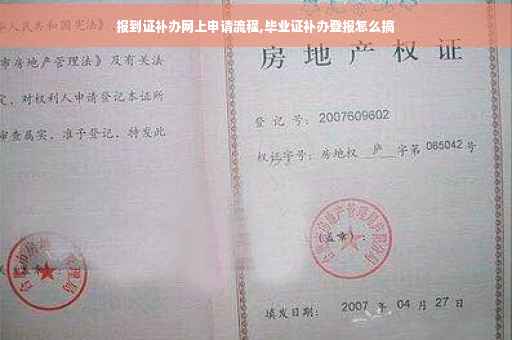 报到证补办网上申请流程,毕业证补办登报怎么搞
人民共和国宪法》
市房地产管理法》及有关法
定，对权利人申请登记本证所
审查属实，准予登记，特发此
房地产权证
登记号：2007609602
权证字号：房地权 庐 字第 085042 号
(盖章)：
填发日期：2007 年 04 月 27 日